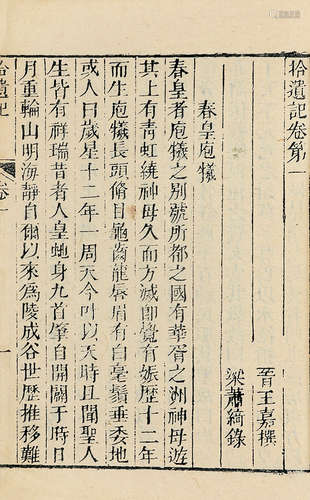 拾遺記卷第一
晉王嘉撰
梁蕭綺錄
春皇庖犧
春皇者庖犧之別號所都之國有華胥之洲神母遊
其上有青虹繞神母久而方滅即覺有娠歷十二年
而生庖犧長頭脩目龜齒龍唇眉有白毫鬚垂委地
或人曰歲星十二年一周天今叶以天時且聞聖人
生皆有祥瑞昔者人皇蛇身九首肇自開闢于時日
月重輪山明海靜自爾以來為陵成谷世歷推移難
拾遺記
卷一
一